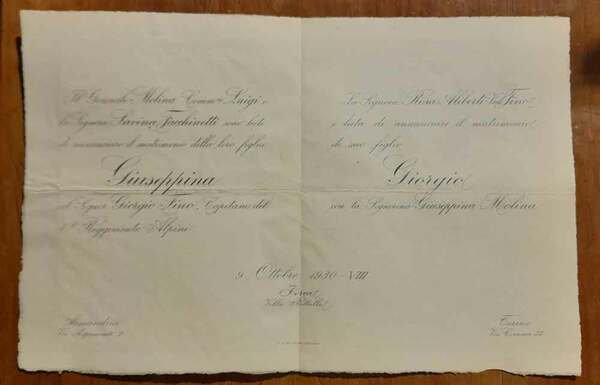 Il Generale Molina Comm. Luigi e
la Signora Savina Jacchinetti sono lieti
di annunciare il matrimonio della loro figlia
Giuseppina
al Signor Giorgio Fino, Capitano del
Reggimento Alpini
La Signora Rosa Aliberti Ved. Fino
è lieta di annunciare il matrimonio
di suo figlio
Giorgio
con la Signorina Giuseppina Molina
9 Ottobre 1930-VIII
Ivrea
Villa
Alessandria
Via
Torino
Via